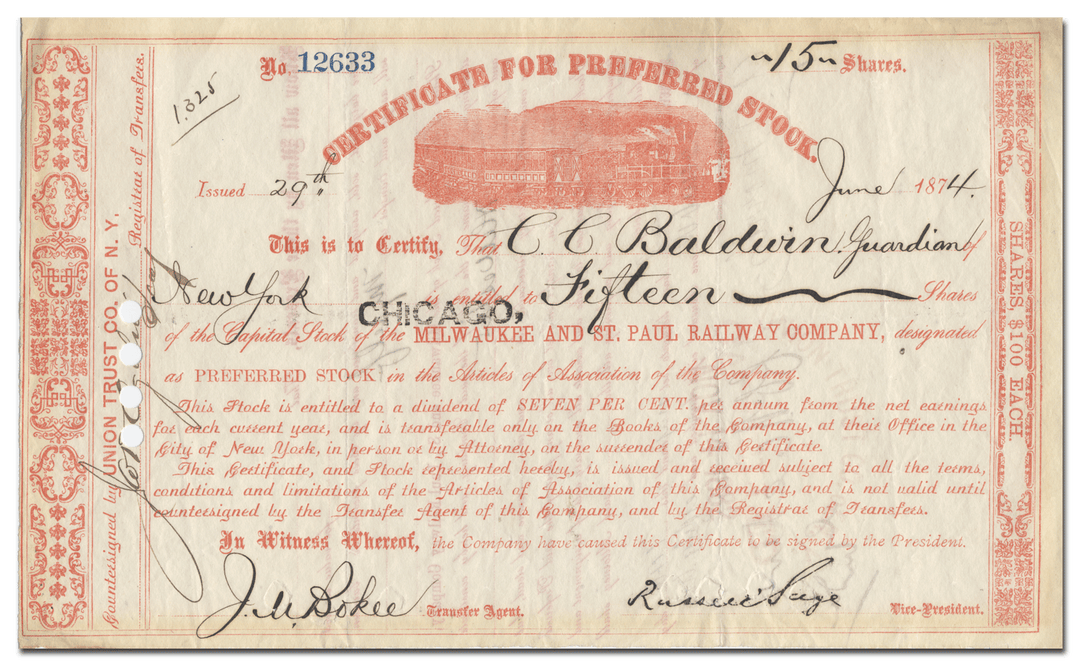 No. 12633
"15" Shares.
1.325
CERTIFICATE FOR PREFERRED STOCK.
Issued 29th June 1874.
This is to Certify, That C. C. Baldwin, Guardian of
New York is entitled to Fifteen Shares
CHICAGO,
of the Capital Stock of the MILWAUKEE AND ST. PAUL RAILWAY COMPANY, designated
as PREFERRED STOCK in the Articles of Association of the Company.
This Stock is entitled to a dividend of SEVEN PER CENT. per annum from the net earnings
for each current year, and is transferable only on the Books of the Company, at their Office in the
City of New York, in person or by Attorney, on the surrender of this Certificate.
This Certificate, and Stock represented hereby, is issued and received subject to all the terms,
conditions and limitations of the Articles of Association of this Company, and is not valid until
countersigned by the Transfer Agent of this Company, and by the Registrar of Transfers.
In Witness Whereof, the Company have caused this Certificate to be signed by the President.
J. M. Bokee Transfer Agent.
Russell Sage Vice-President.
Countersigned by UNION TRUST CO. OF N. Y.
Registrar of Transfers.
SHARES, $100 EACH.